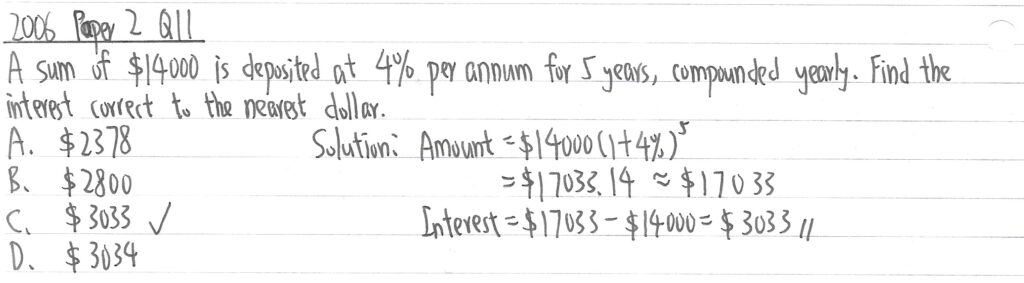 2006 Paper 2 Q11
A sum of $14000 is deposited at 4% per annum for 5 years, compounded yearly. Find the
interest correct to the nearest dollar.
A. $2378
B. $2800
C. $3033 ✓
D. $3034
Solution: Amount = $14000(1+4%)⁵
= $17033.14 ≈ $17033
Interest = $17033 - $14000 = $3033 //